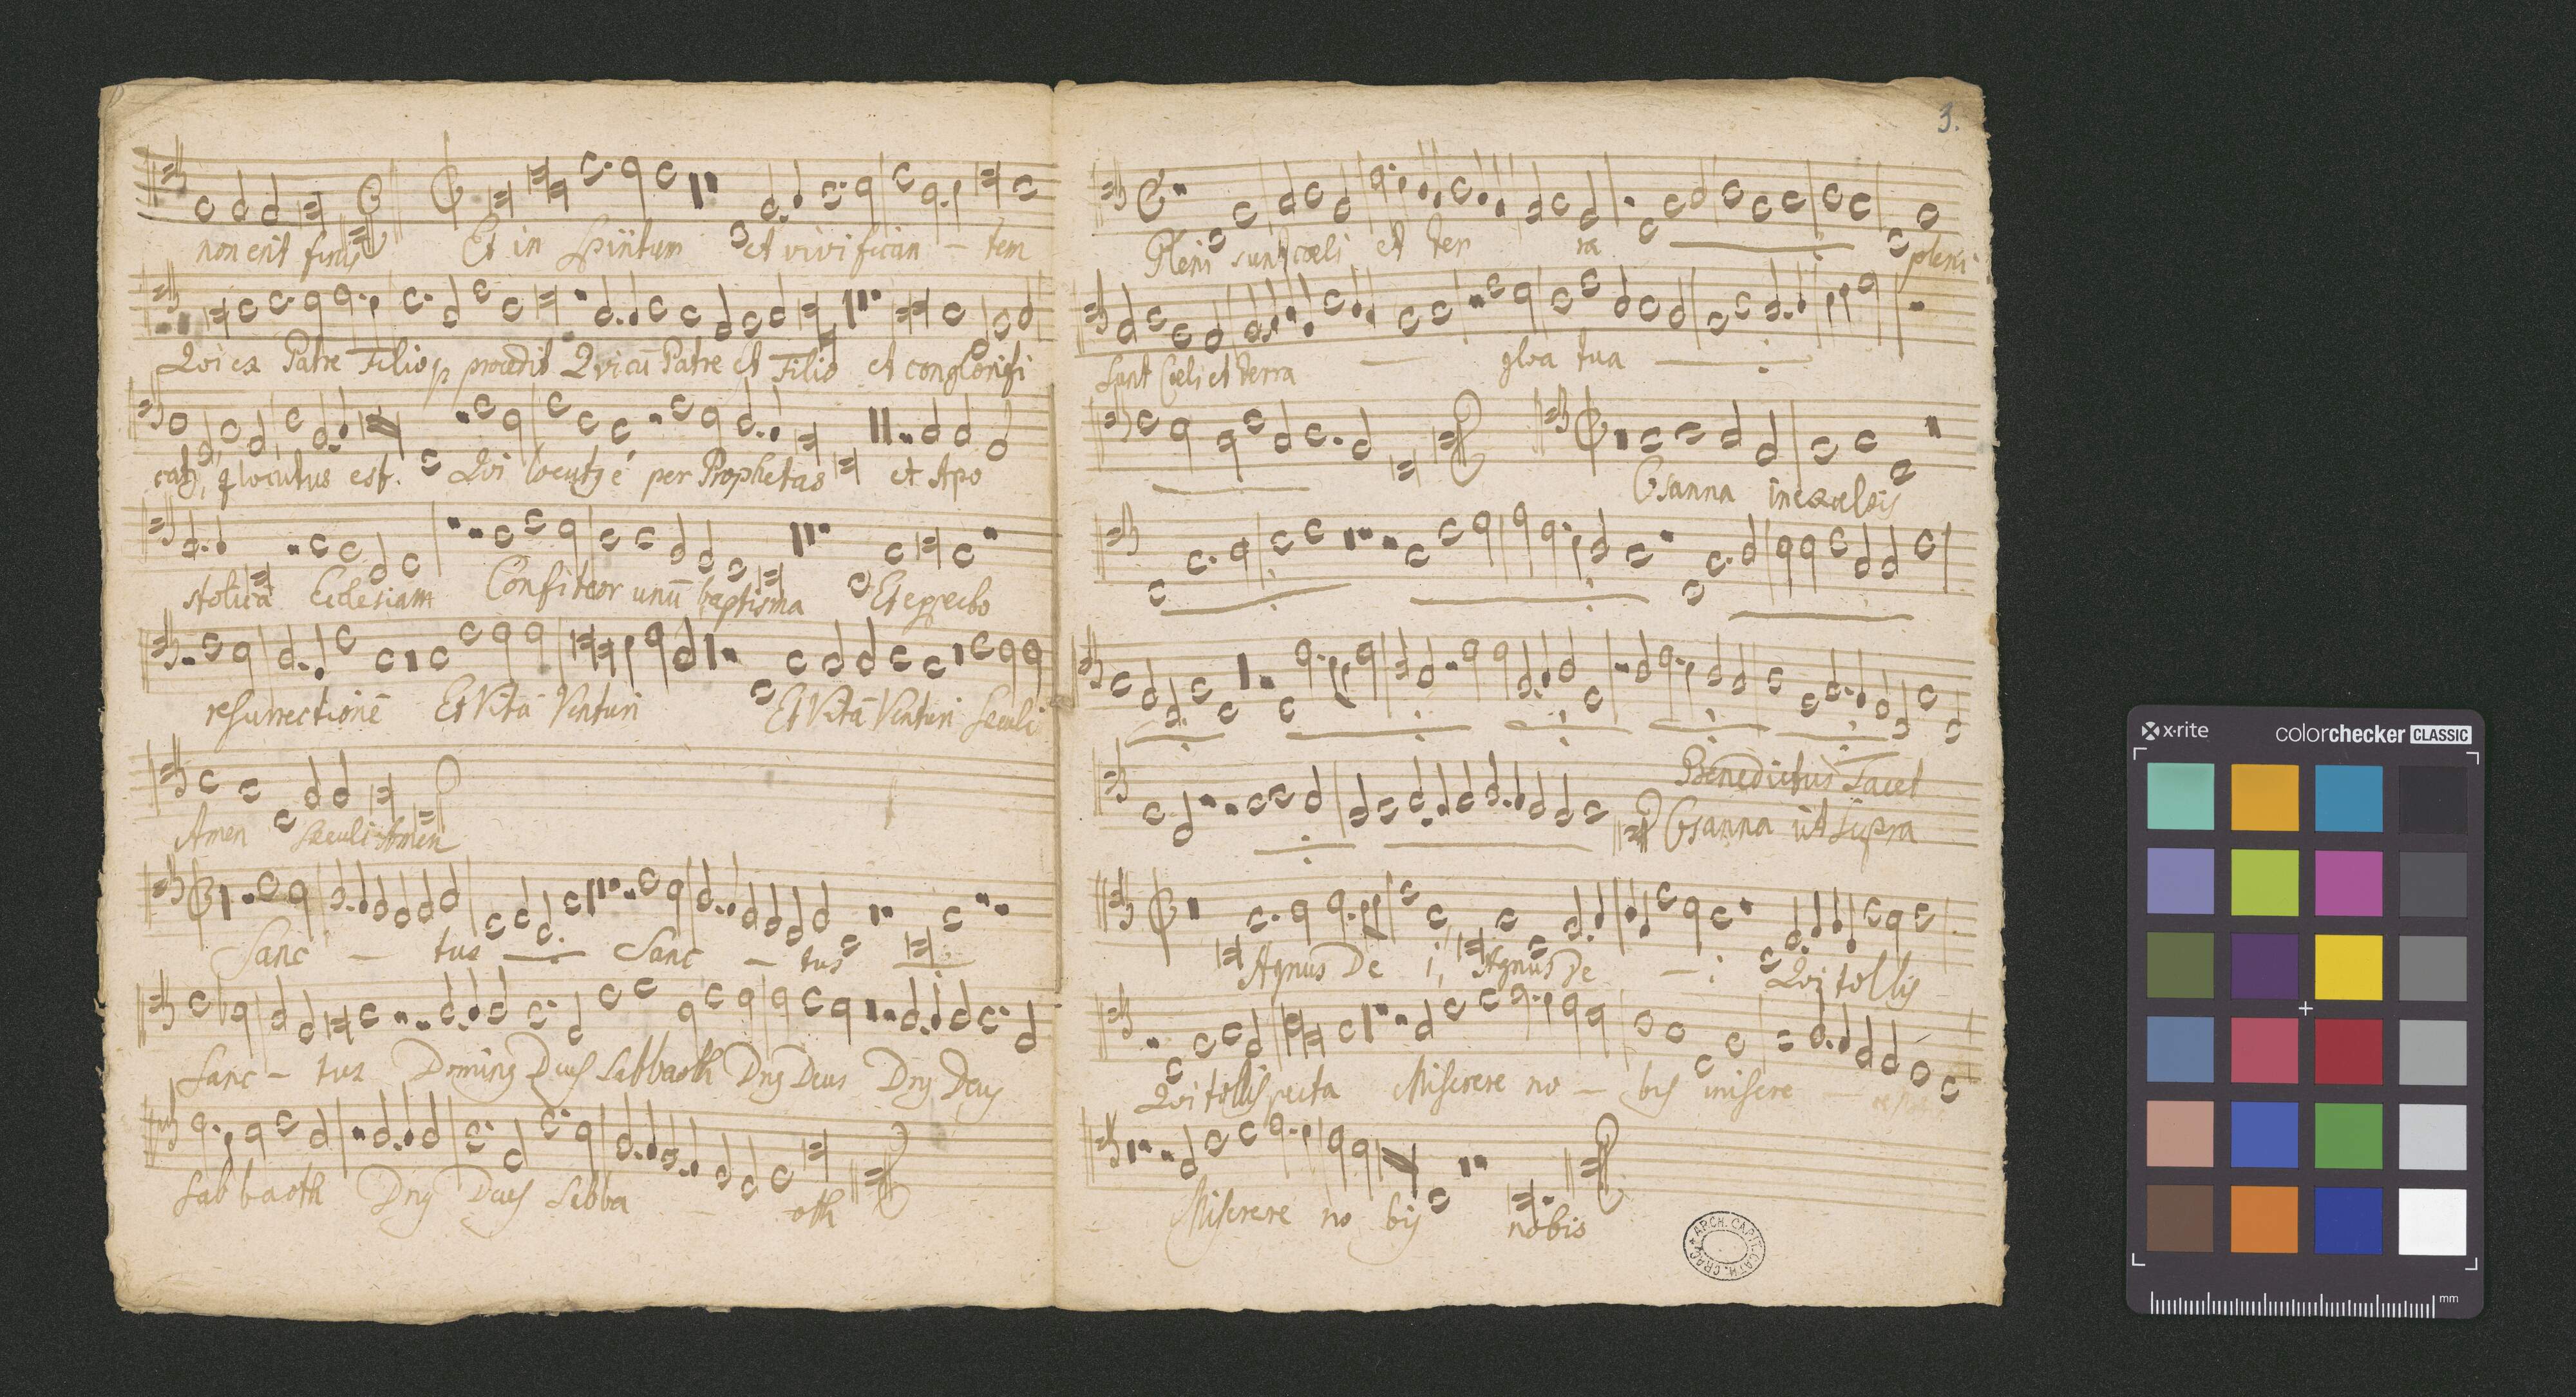 non erit finis Et in Spiritum et vivifican - tem
Qui ex Patre Filioq procedit Qui cū Patre et Filio et conglorifi
catur, q locutus est. Qui locutus é per Prophetas et Apo
stolicā Ecclesiam Confiteor unū baptisma Et expecto
resurrectionē Et Vitā Venturi Et Vitā Venturi Saeculi
Amen Saeculi Amen
Sanc - tus Sanc - tus
Sanc - tus Dominus Deus Sabbaoth Dns Deus Dns Deus
Sabbaoth Dns Deus Sabba - oth
3.
Pleni sunt coeli et ter ra pleni
sunt Coeli et terra gloa tua
Osanna in excelsis
Benedictus Tacet
Osanna ut Supra
Agnus De i, Agnus De - i Qui tollis
Qui tollis pecta Miserere no - bis misere
Miserere no bis nobis
ARCH. CAPIT. CATH. CRAC.
x·rite colorchecker CLASSIC
mm